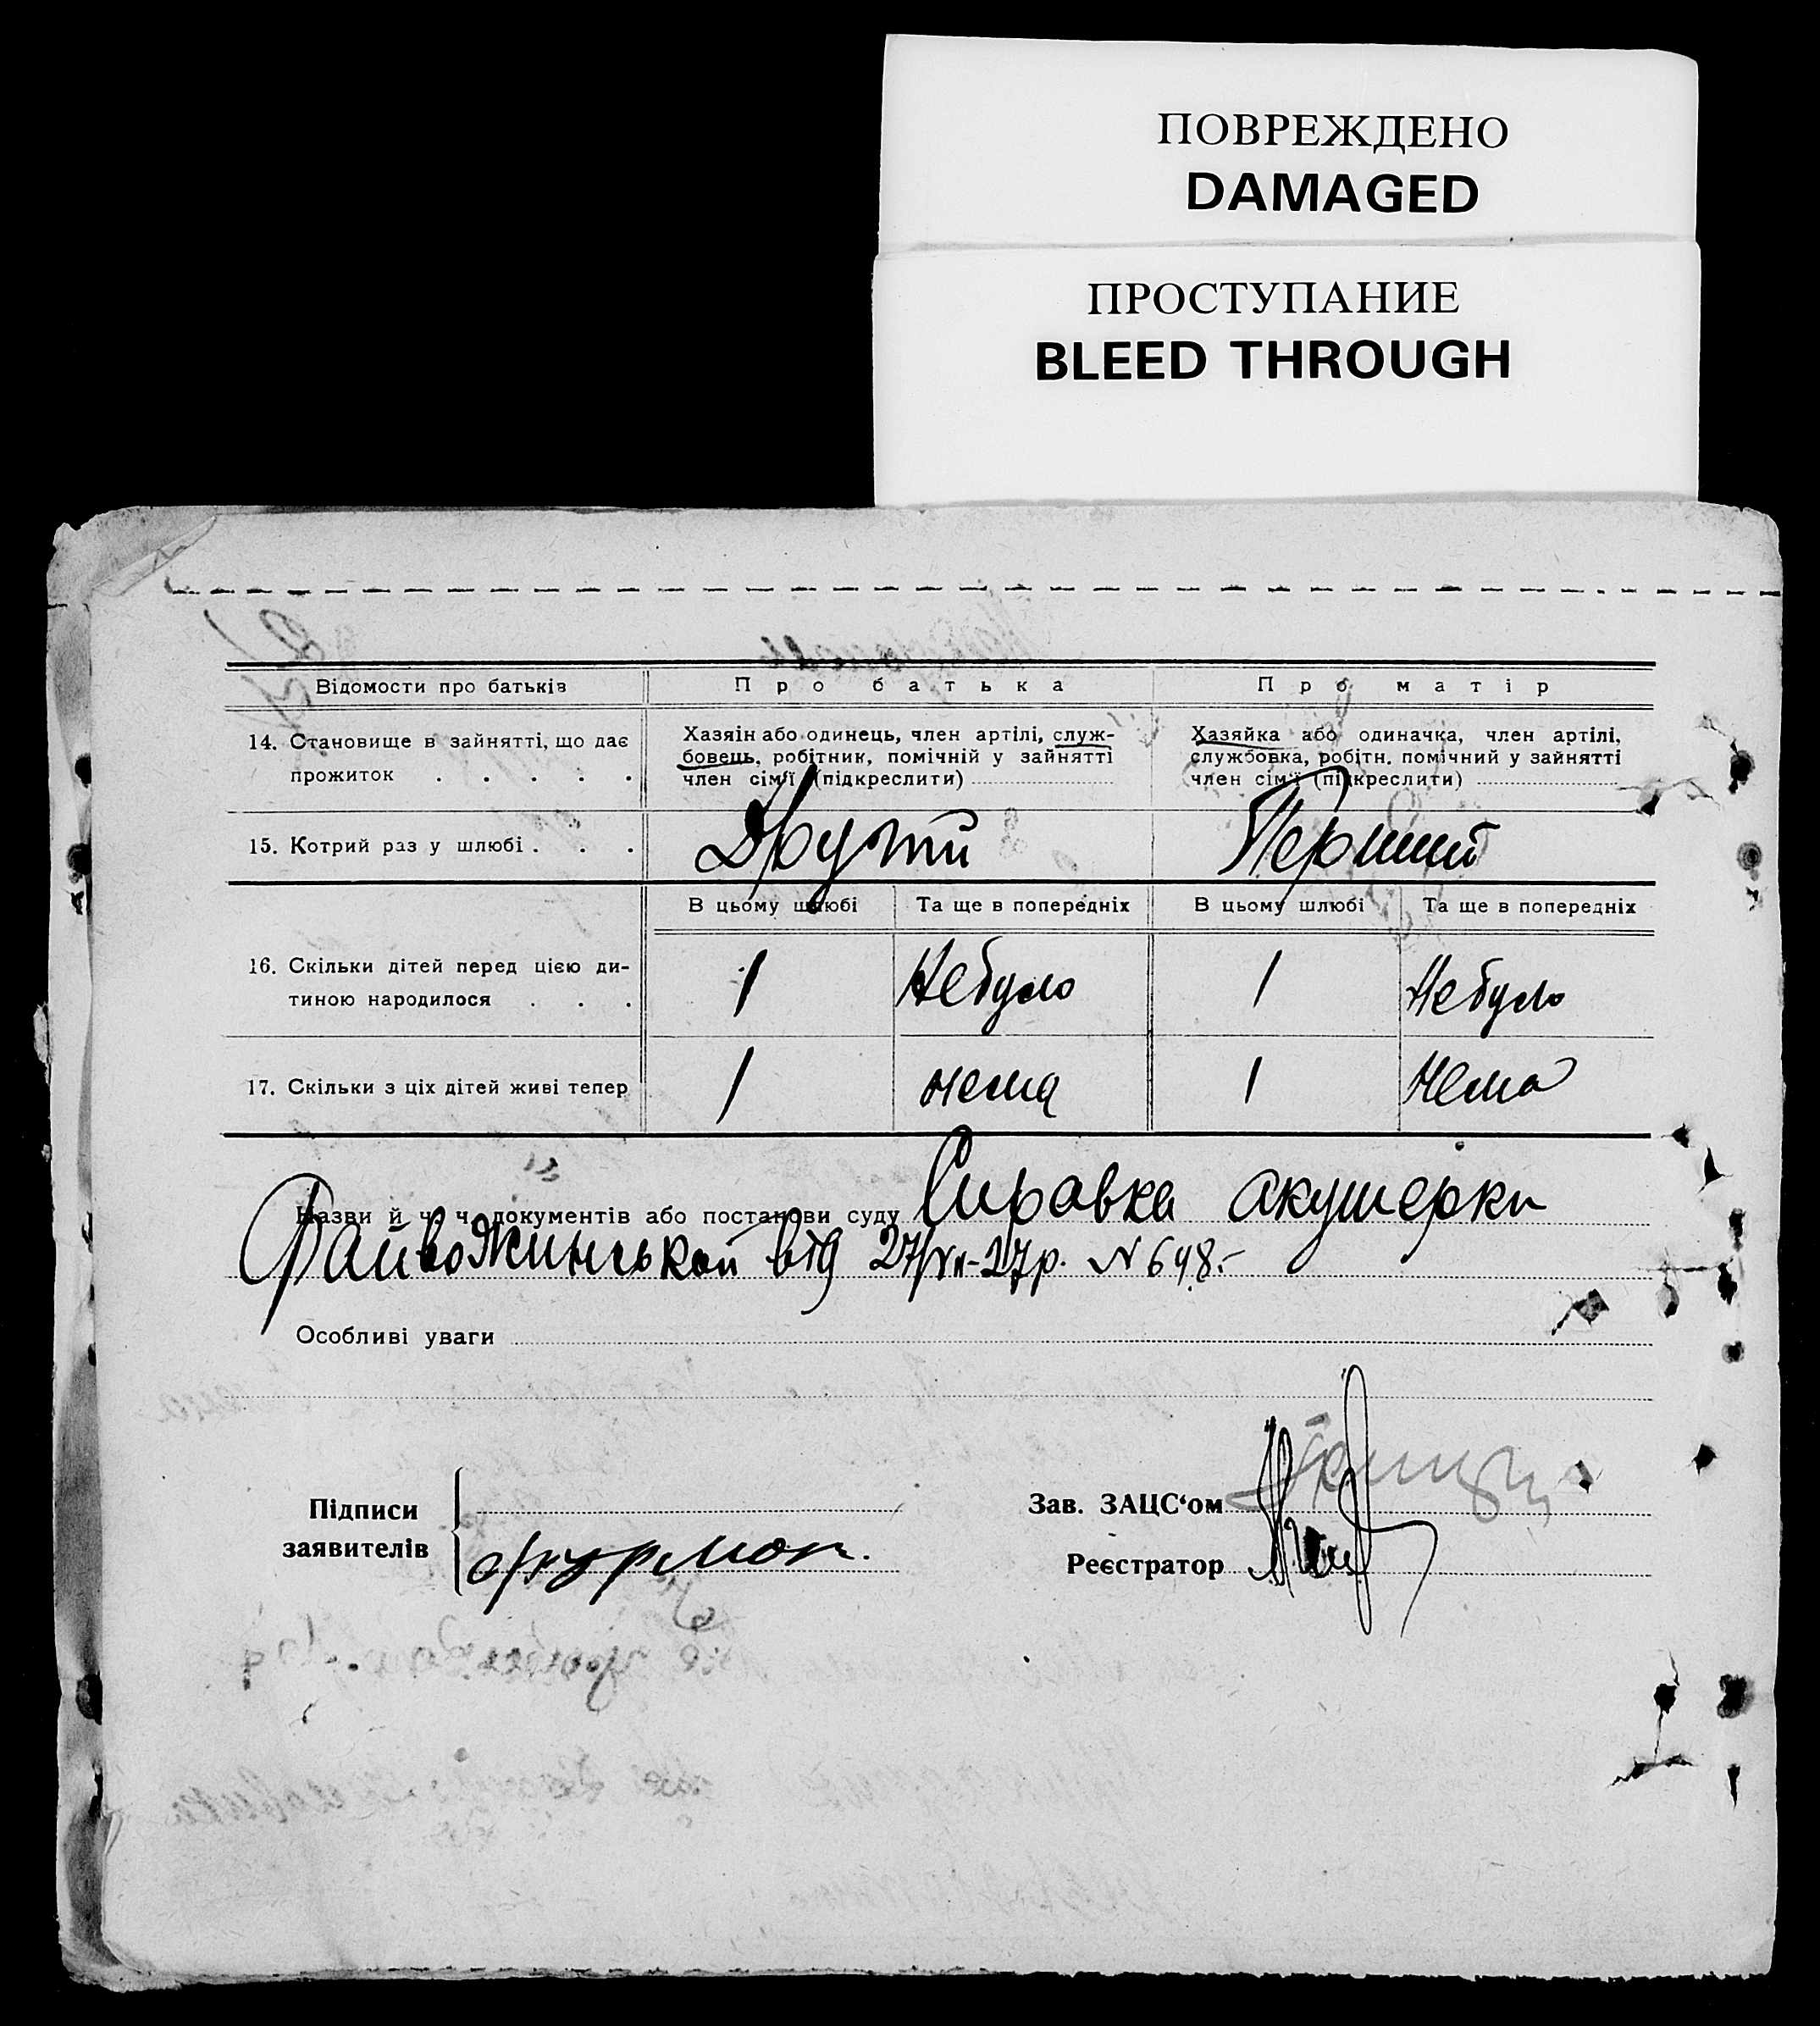 ПОВРЕЖДЕНО
DAMAGED
ПРОСТУПАНИЕ
BLEED THROUGH
Відомости про батьків Про батька Про матір
14. Становище в зайнятті, що дає прожиток . . . . .
Хазяін або одинець, член артілі, служ-
бовець, робітник, помічній у зайнятті
член сім'ї (підкреслити)
Хазяйка або одиначка, член артілі,
службовка, робітн. помічний у зайнятті
член сім'ї (підкреслити)
15. Котрий раз у шлюбі . . . Другий Перший
В цьому шлюбі Та ще в попередніх В цьому шлюбі Та ще в попередніх
16. Скільки дітей перед цією ди-
тиною народилося . . . 1 Небуло 1 Небуло
17. Скільки з ціх дітей живі тепер 1 нема 1 Нема
Назви й ч. ч. документів або постанови суду Справка акушерки
Файвожинської від 27/VII-27р. N 648.-
Особливі уваги
Підписи
заявителів
Фурман.
Зав. ЗАЦС‘ом
Реєстратор